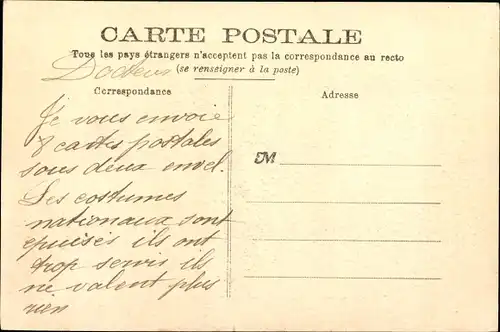 CARTE POSTALE
Tous les pays étrangers n'acceptent pas la correspondance au recto
(se renseigner à la poste)
Docteur
Correspondance
Je vous envoie
8 cartes postales
sous deux envel.
Les costumes
nationaux sont
épuisés ils ont
trop servis ils
ne valent plus
rien
Adresse
M